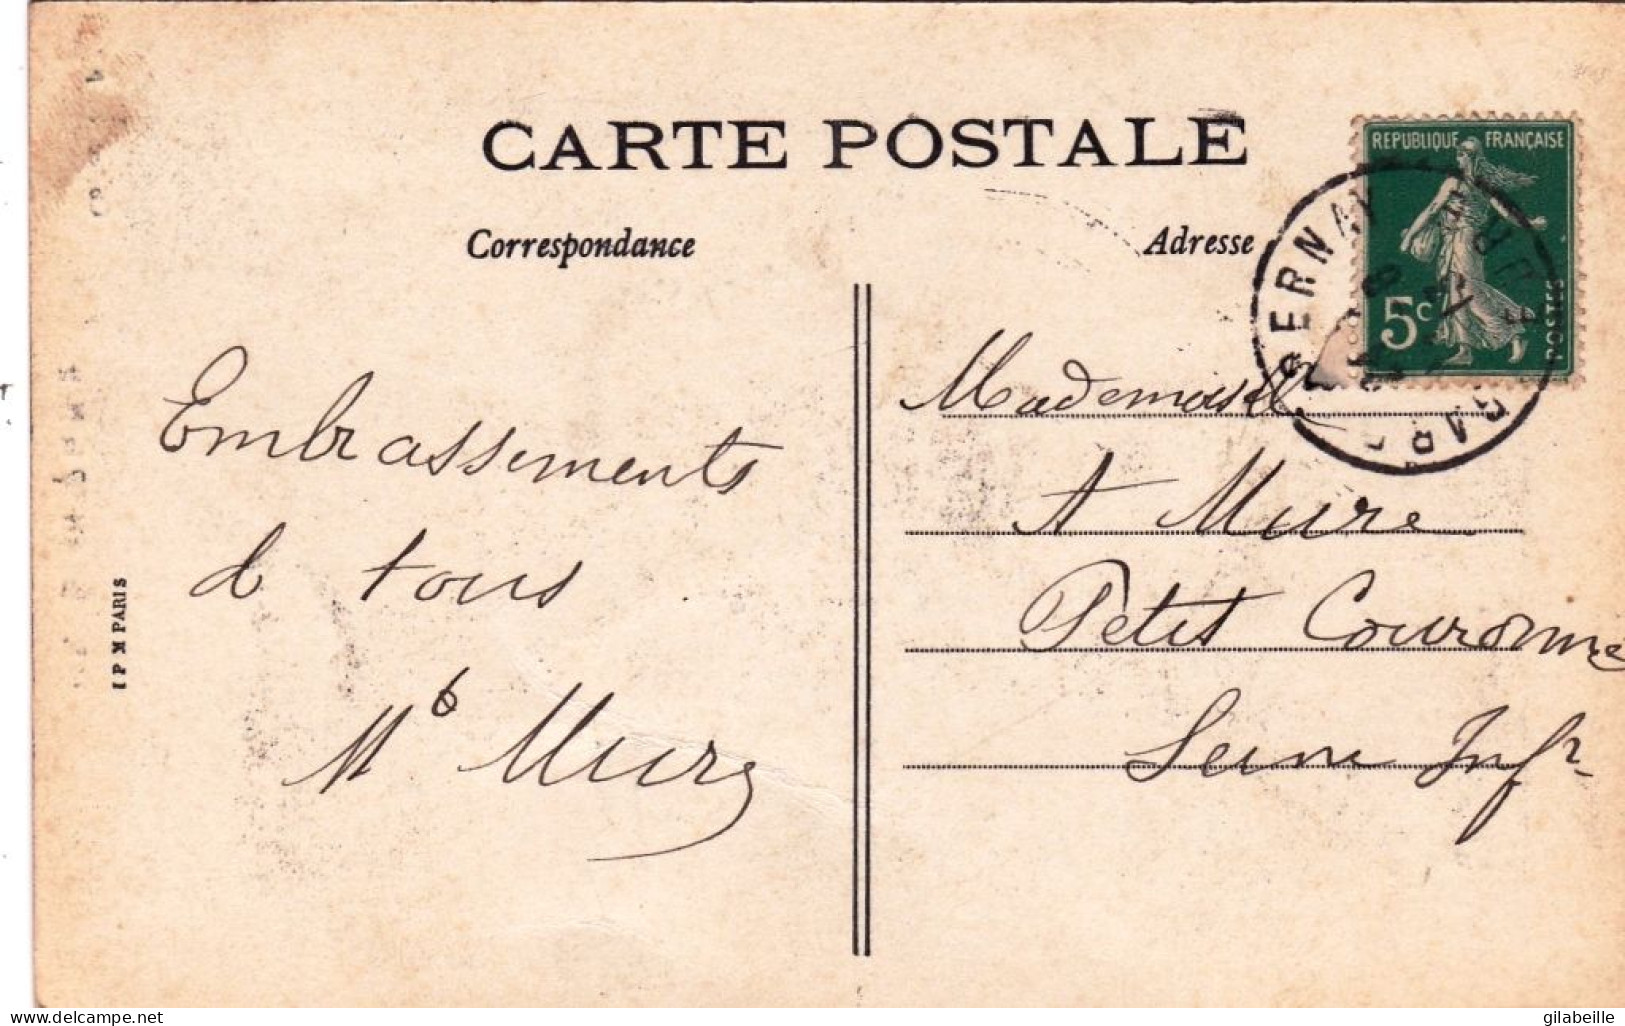 CARTE POSTALE
Correspondance
Adresse
REPUBLIQUE FRANÇAISE
5c
POSTES
EPERNAY
GARE
Embrassements
d tous
Mure
Mademoisell
A Mure
Petit Couronne
Seine Infr
I P M PARIS
delcampe.net
gilabeille